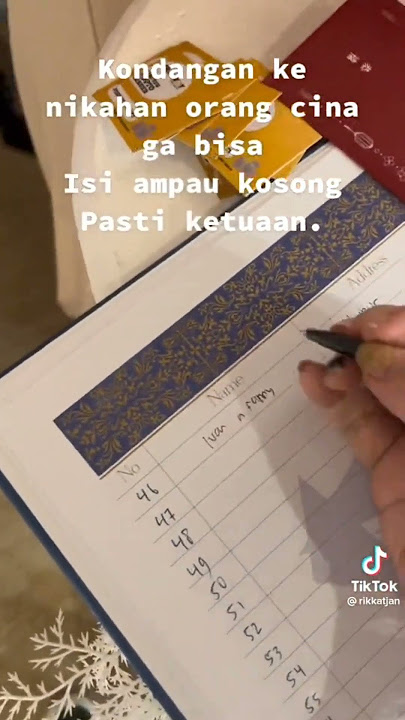 Kondangan ke
nikahan orang cina
ga bisa
Isi ampau kosong
Pasti ketuaan.
Address
Name
Ivan n fanny
No
46
47
48
49
50
51
52
53
54
55
TikTok
@rikkatjan